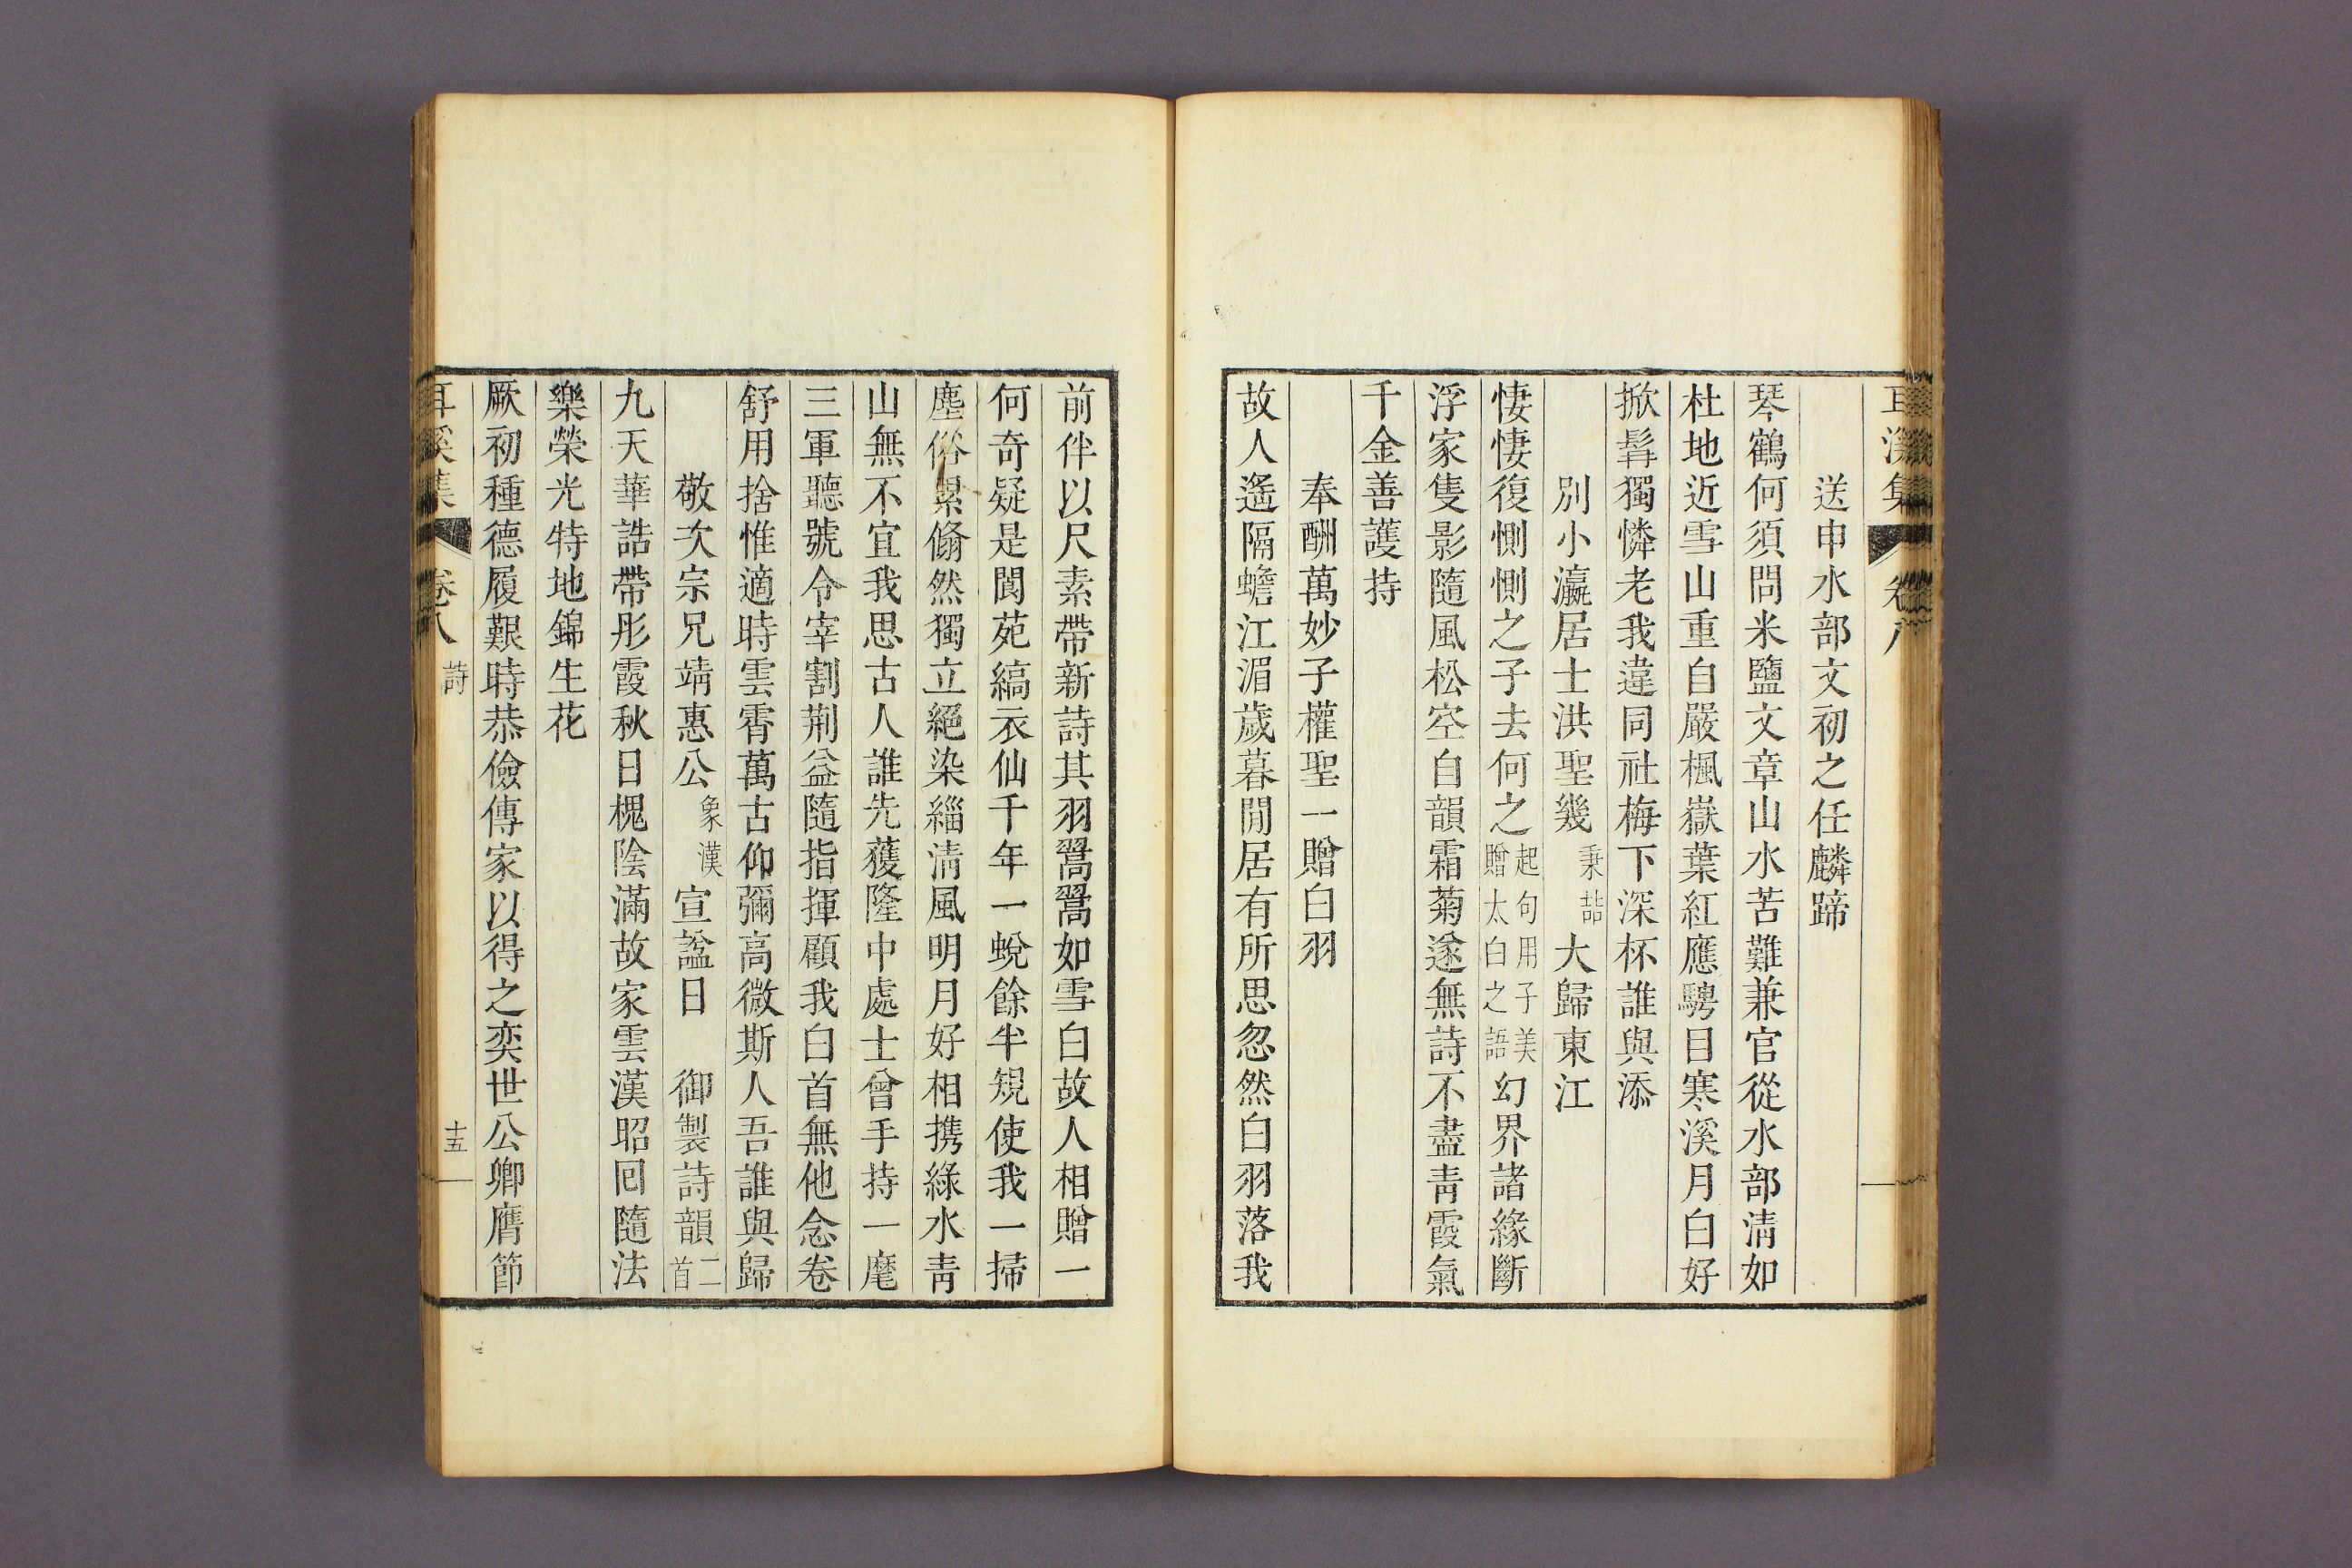 耳溪集 卷八
送申水部文初之任麟蹄
琴鶴何須問米鹽文章山水苦難兼官從水部淸如
杜地近雪山重自嚴楓嶽葉紅應騁目寒溪月白好
掀髯獨憐老我違同社梅下深杯誰與添
別小瀛居士洪聖幾秉喆大歸東江
悽悽復惻惻之子去何之起句用子美贈太白之語幻界諸緣斷
浮家隻影隨風松空自韻霜菊遂無詩不盡靑霞氣
千金善護持
奉酬萬妙子權聖一贈白羽
故人遙隔蟾江湄歲暮閒居有所思忽然白羽落我
前伴以尺素帶新詩其羽翯翯如雪白故人相贈一
何奇疑是閬苑縞衣仙千年一蛻餘半規使我一掃
塵俗累翛然獨立絕染緇淸風明月好相携綠水靑
山無不宜我思古人誰先獲隆中處士曾手持一麾
三軍聽號令宰割荊益隨指揮顧我白首無他念卷
舒用捨惟適時雲霄萬古仰彌高微斯人吾誰與歸
敬次宗兄靖惠公象漢宣諡日 御製詩韻二首
九天華誥帶彤霞秋日槐陰滿故家雲漢昭回隨法
樂榮光特地錦生花
厥初種德履艱時恭儉傳家以得之奕世公卿膺節
耳溪集 卷八 詩 十五